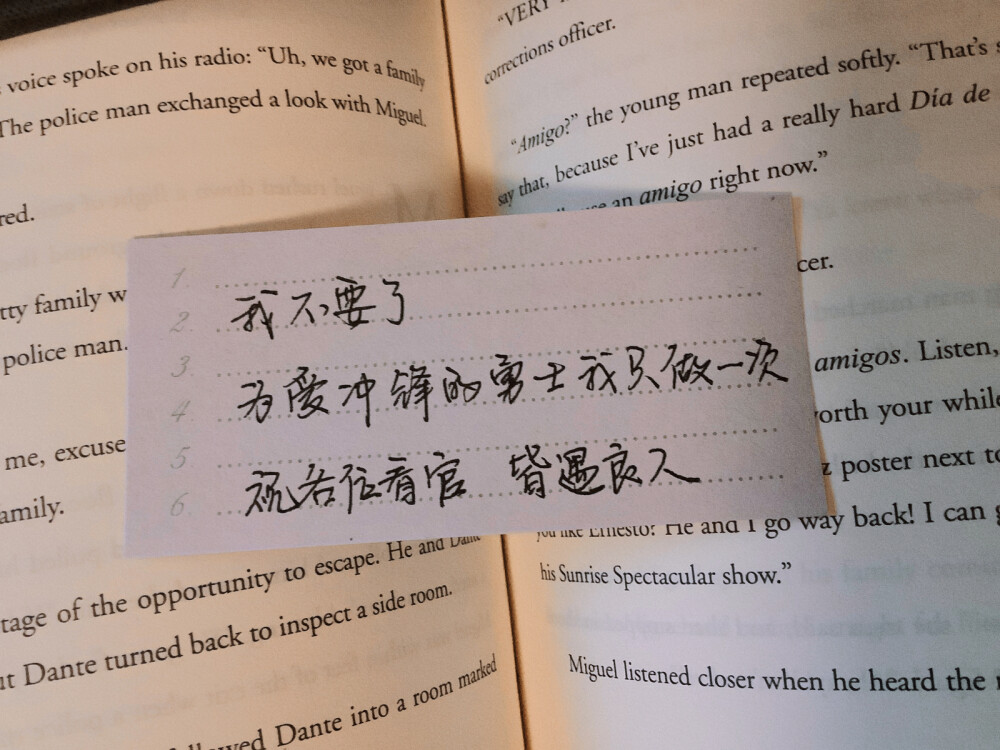 voice spoke on his radio: “Uh, we got a family
The police man exchanged a look with Miguel.
red.
tty family w
police man.
me, excuse
amily.
tage of the opportunity to escape. He and Dante
ut Dante turned back to inspect a side room.
llowed Dante into a room marked
“VERY
corrections officer.
“Amigo?” the young man repeated softly. “That’s
say that, because I’ve just had a really hard Día de
an amigo right now.”
cer.
amigos. Listen,
orth your while
z poster next to
you like Ernesto? He and I go way back! I can g
his Sunrise Spectacular show.”
Miguel listened closer when he heard the
1.
2. 我不要了
3.
4. 为爱冲锋的勇士我只做一次
5.
6. 祝各位看官 皆遇良人